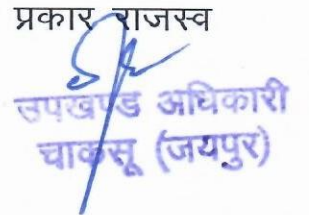 प्रकार राजस्व
उपखण्ड अधिकारी
चाकसू (जयपुर)